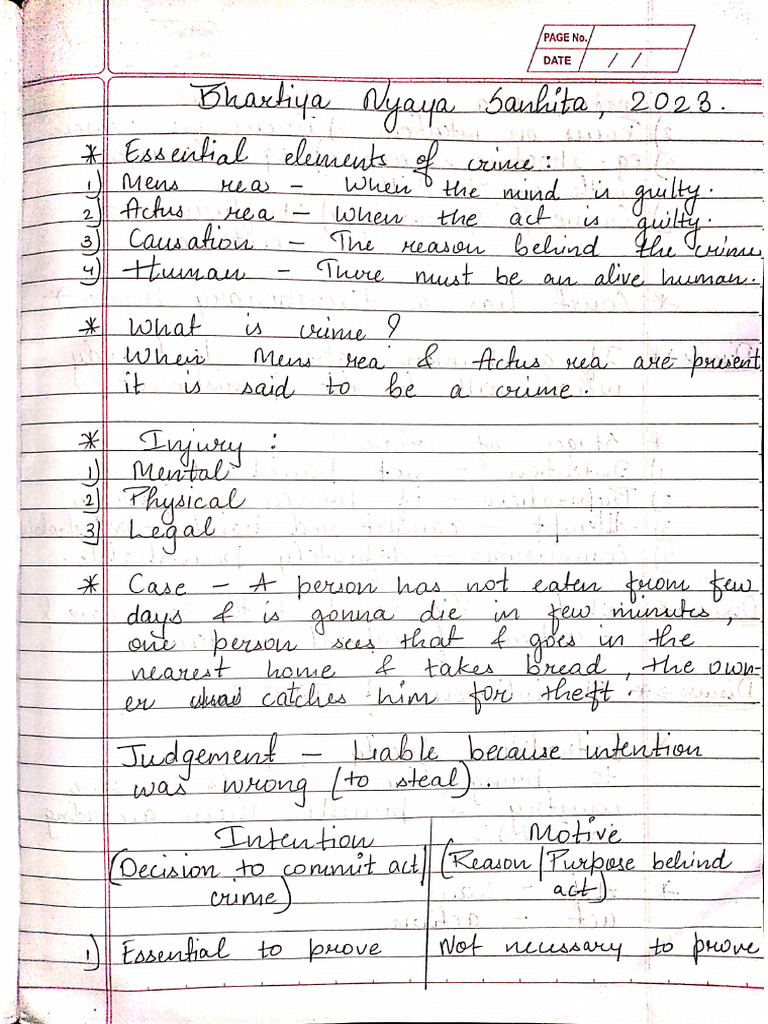 PAGE No.
DATE / /
Bhartiya Nyaya Sanhita, 2023.
* Essential elements of crime:
1) Mens rea - When the mind is guilty.
2) Actus rea - When the act is guilty.
3) Causation - The reason behind the crime
4) Human - There must be an alive human.
* What is crime?
When Mens rea & Actus rea are present
it is said to be a crime.
* Injury :
1) Mental
2) Physical
3) Legal
* Case - A person has not eaten from few
days & is gonna die in few minutes,
one person sees that & goes in the
nearest home & takes bread, the own-
er catches him for theft.
Judgement - Liable because intention
was wrong (to steal).
Intention Motive
(Decision to commit act/ (Reason/Purpose behind
crime) act)
1) Essential to prove Not necessary to prove